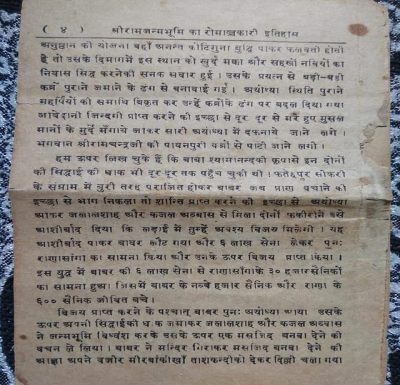 ( ४ ) श्रीरामजन्मभूमि का रोमाञ्चकारी इतिहास
अनुष्ठान की योजना वहाँ अनन्त कोटिगुना वृद्धि पाकर फलवती होती
है तो उसके दिमाग में इस स्थान को खुर्द मक्का और सहस्रों नबियों का
निवास सिद्ध करनेकी सनक सवार हुई । उसके प्रयत्न से बड़ी-बड़ी
कब्रें पुराने जमाने के ढंग से बनवाई गईं । अयोध्या स्थिति पुराने
महर्षियों की समाधि विकृत कर उन्हें कब्रोंके ढंग पर बदल दिया गया
जावेदानी जिन्दगी प्राप्त करने की इच्छा से दूर दूर से मरे हुए मुसल
मानों के मुर्दे मँगाये जाकर सारी अयोध्या में दफनाये जाने लगे ।
भगवान श्रीरामचन्द्रजी की पावनपुरी कब्रों से पाटी जाने लगी ।
हम ऊपर लिख चुके हैं कि बाबा श्यामानन्दकी कृपासे इन दोनों
की सिद्धाई की धाक भी दूर-दूर तक पहुँच चुकी थी । फतेहपुर सीकरी
के संग्राम में बुरी तरह पराजित होकर बाबर जब प्राण बचाने को
इच्छा से भाग निकला तो शान्ति प्राप्त करने की इच्छा से अयोध्या
आकर जलालशाह और कजल अब्बास से मिला दोनों फकीरोंने उसे
आशीर्वाद दिया कि लड़ाई में तुम्हें अवश्य विजय मिलेगी । यह
आशीर्वाद पाकर बाबर लौट गया और ६ लाख सेना लेकर पुनः
राणासांगा का सामना किया और उनके ऊपर विजय प्राप्त किया ।
इस युद्ध में बाबर की ६ लाख सेना से राणासांगाके ३० हजारसैनिकों
का सामना हुआ । जिसमें बाबर के नब्बे हजार सैनिक और राणा के
६०० सैनिक जीवित बचे ।
विजय प्राप्त करने के पश्चात् बाबर पुनः अयोध्या आया उसके
ऊपर अपनी सिद्धाईकी धाक जमाकर जलालशाह और कजल अब्बास
ने जन्मभूमि विध्वंश करके उसके ऊपर एक मसजिद बनवा देनेकी
वचन ले लिया । बाबर ने मन्दिर गिराकर मसजिद बनवा देने की
आज्ञा अपने वजीर मीरबांकीखाँ ताशकन्दीको देकर दिल्ली चला गया